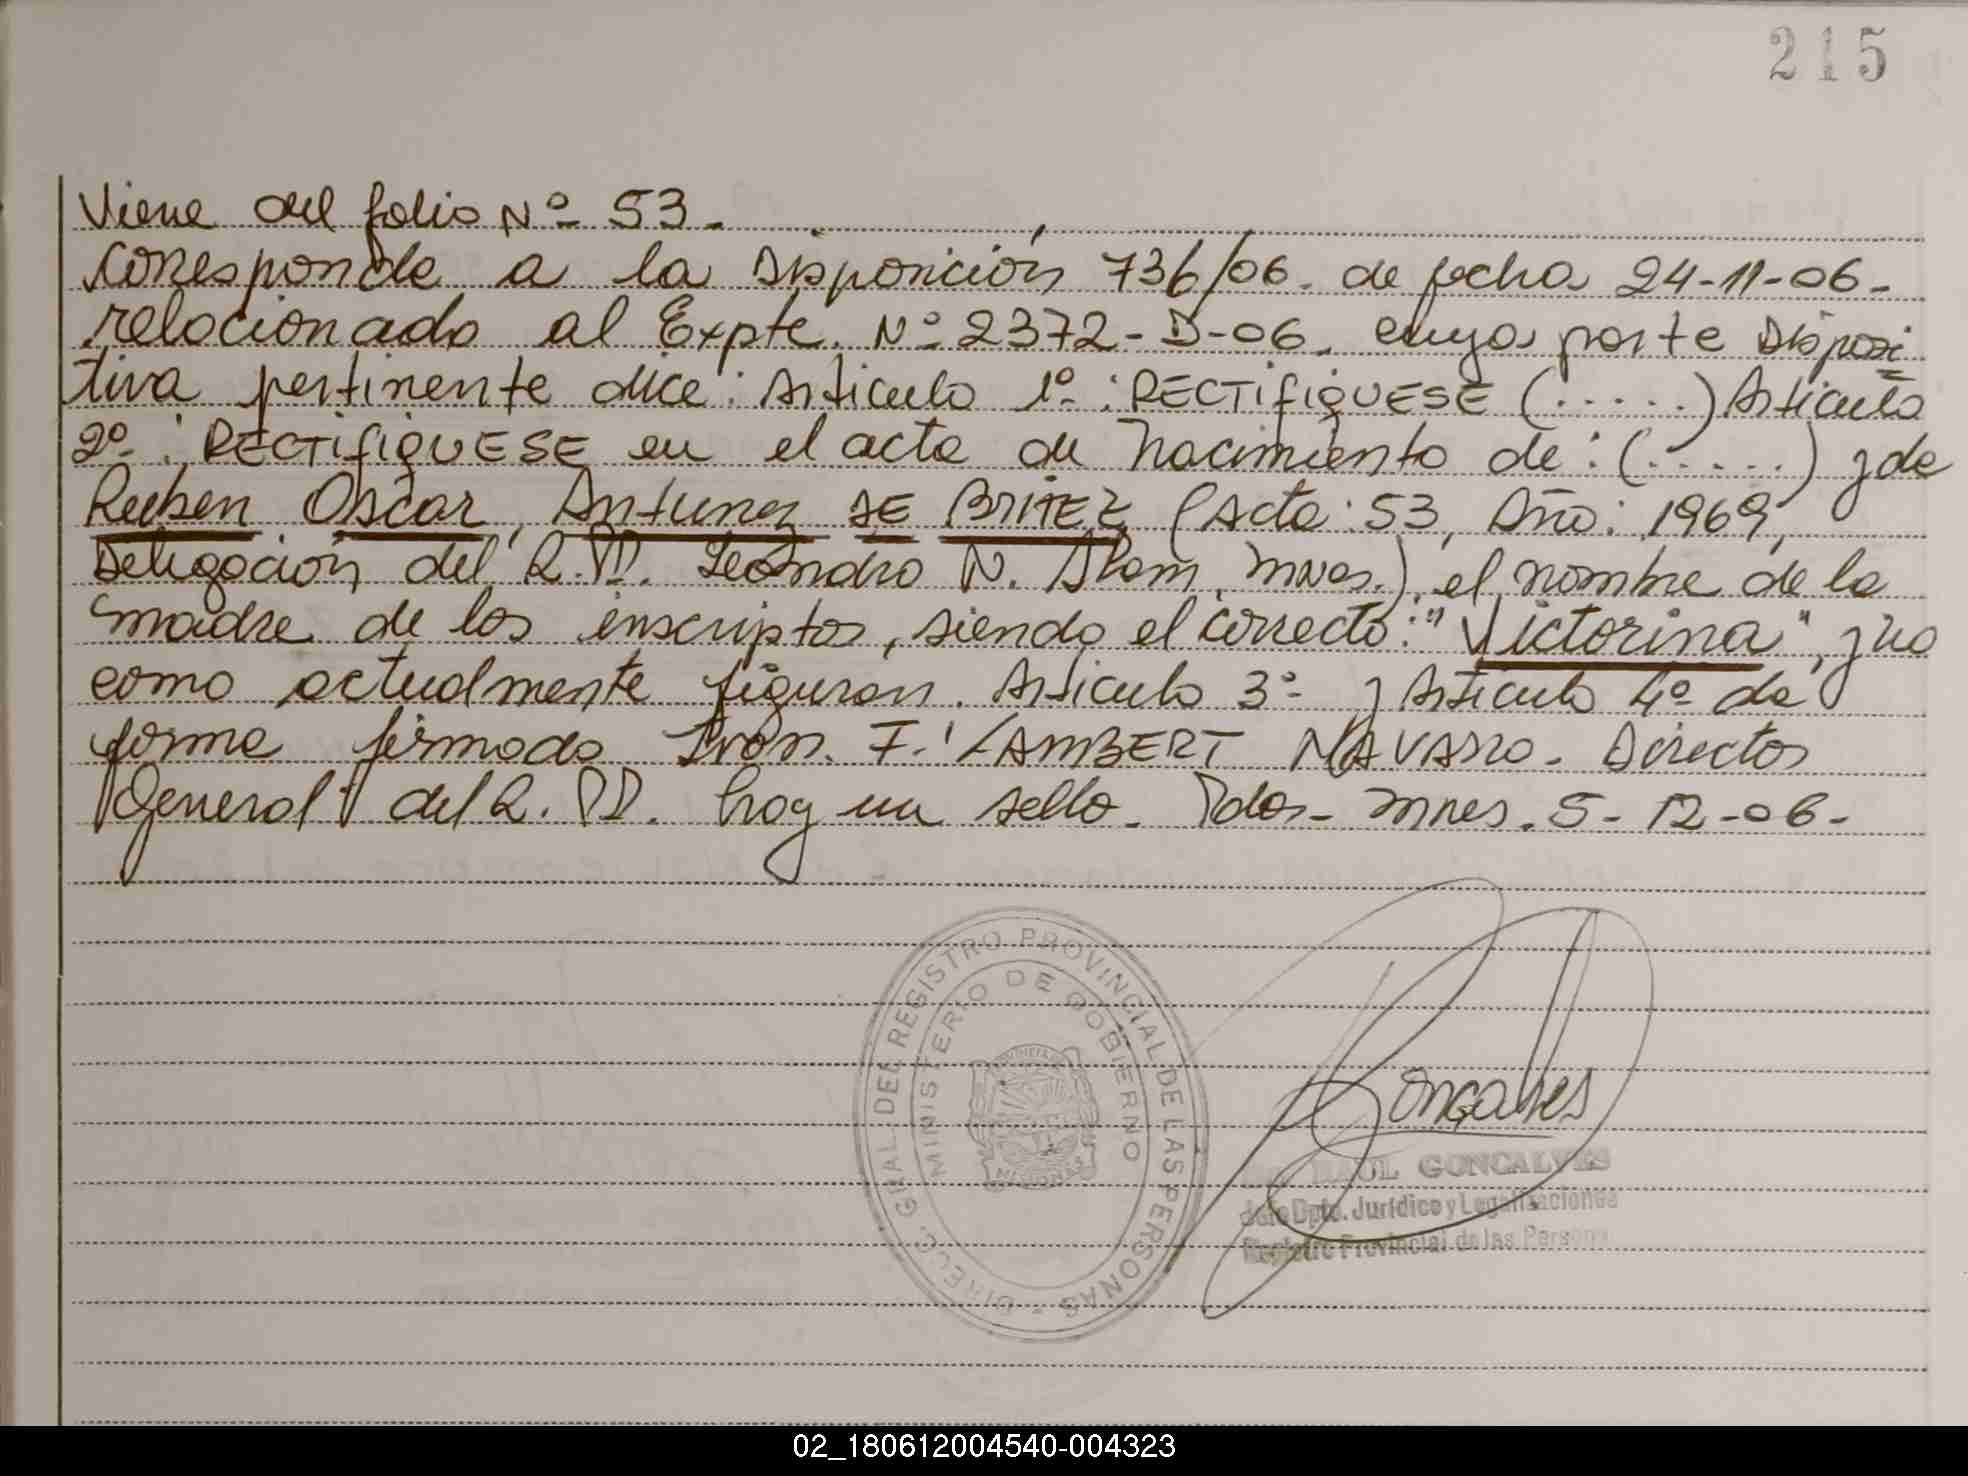 215
Viene del folio Nº 53.
Corresponde a la Disposición 736/06. de fecha 24-11-06-
relacionado al Expte. Nº 2372-D-06. cuya parte Disposi
tiva pertinente dice: Artículo 1º: RECTIFIQUESE (.....) Artículo
2º: RECTIFIQUESE en el acta de nacimiento de: (.....) y de
Ruben Oscar, Antunez DE BRITEZ (Acta: 53, Año: 1969,
Delegación del R.PP. Leandro N. Alem, Mnes.), el nombre de la
madre de los inscriptos, siendo el correcto: "Victorina", y no
como actualmente figuran. Artículo 3º y Artículo 4º de
forma firmado F. LAMBERT NAVARRO. Director
General del R.PP. hay un sello. Pdas- Mnes. 5-12-06-
DIRECC. GRAL. DEL REGISTRO PROVINCIAL DE LAS PERSONAS -
MINISTERIO DE GOBIERNO
MISIONES
Gonçalves
RAUL GONCALVES
Jefe Dpto. Jurídico y Legalizaciones
Registro Provincial de las Personas
02_180612004540-004323